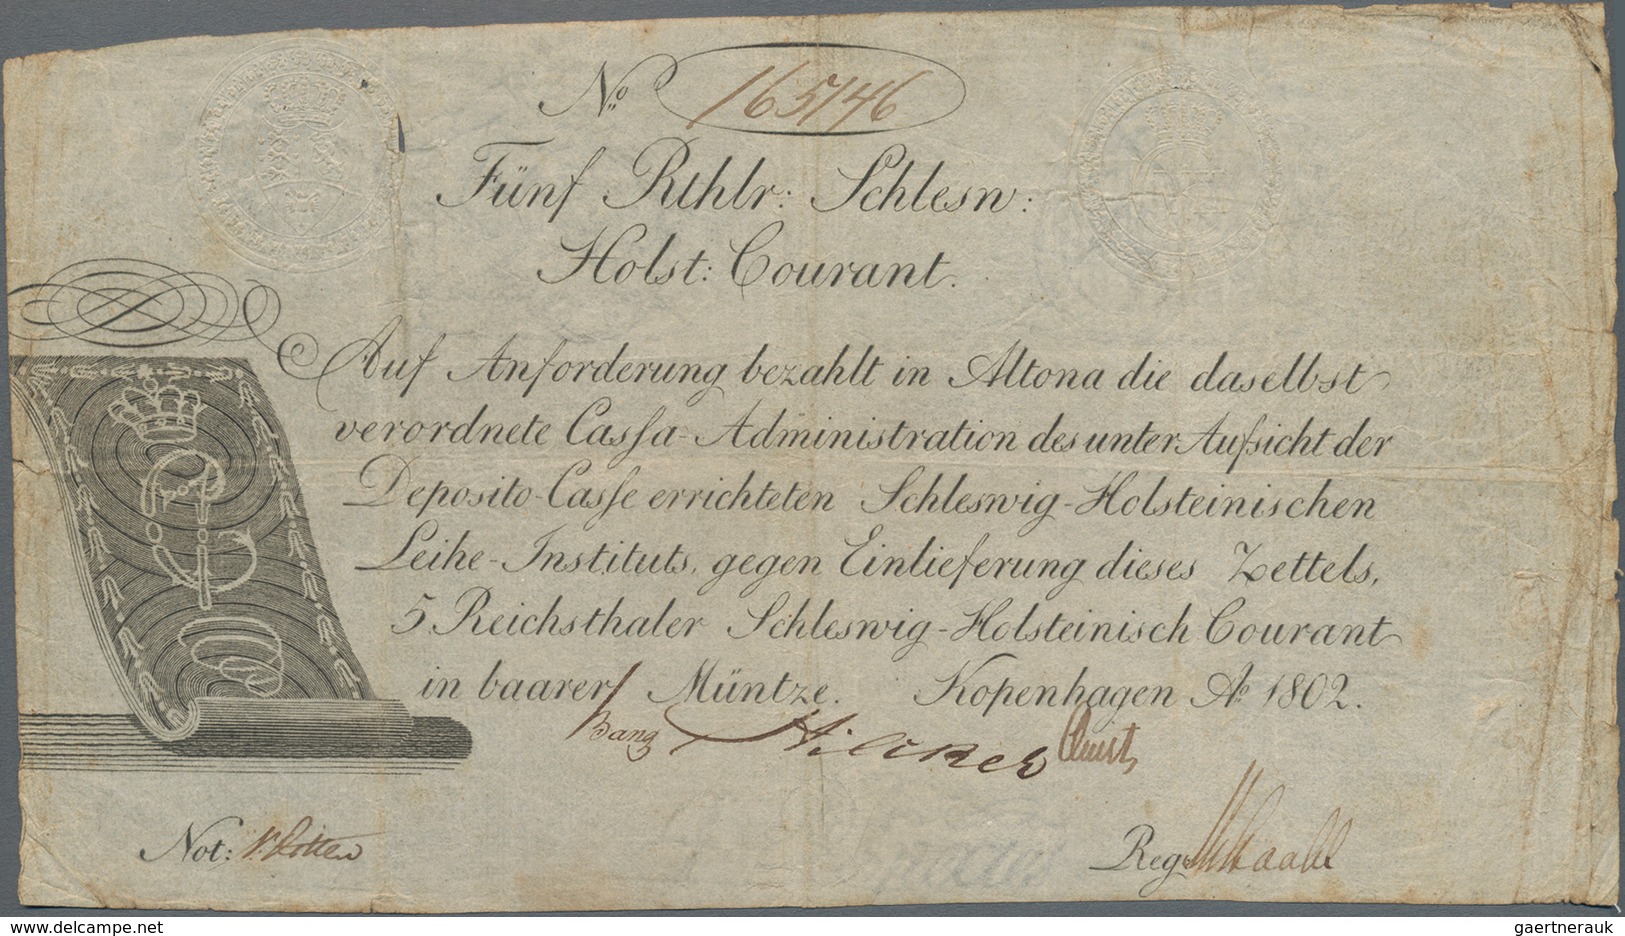 No 165146
Fünf Rthlr: Schlesw:
Holst: Courant.
Auf Anforderung bezahlt in Altona die daselbst
verordnete Cassa-Administration des unter Aufsicht der
Deposito-Casse errichteten Schleswig-Holsteinischen
Leihe-Instituts, gegen Einlieferung dieses Zettels,
5 Reichsthaler Schleswig-Holsteinisch Courant
in baarer Müntze. Kopenhagen Ao 1802.
Bang
Not:
Reg
www.delcampe.net
gaertnerauk